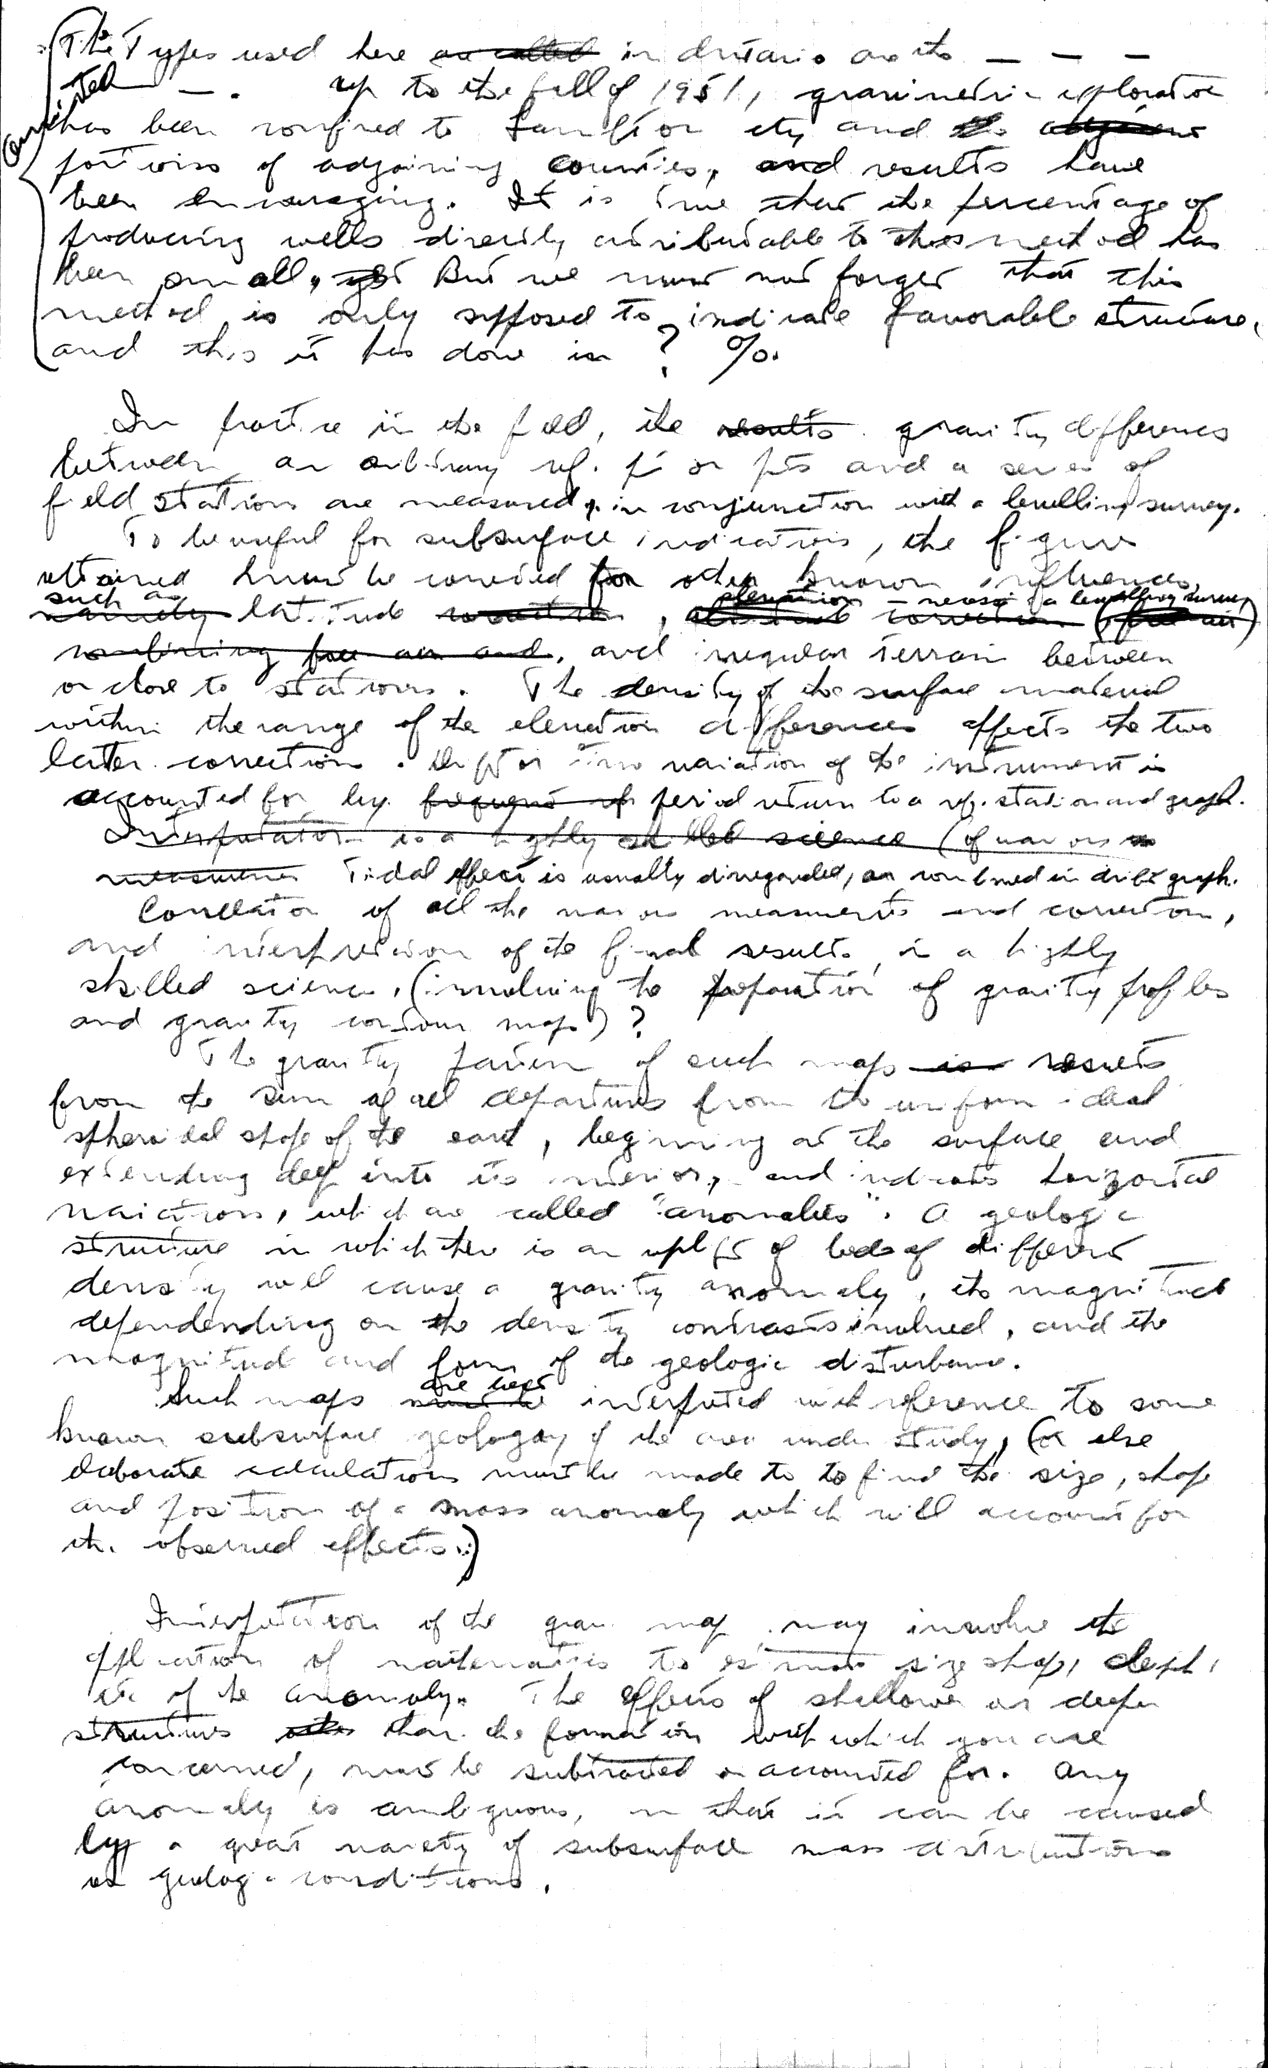 The Types used here as called in Ontario are the — — —
omitted — . up to the fall of 1951, gravimetric exploration
has been confined to Lambton cty and the adjacent
portions of adjoining counties, and results have
been encouraging. It is true that the percentage of
producing wells directly attributable to this method has
been small, yet But we must not forget that this
method is only supposed to indicate favorable structure,
and this it has done in ? %.
In practice in the field, the results gravity differences
between an arbitrary ref. pt or pts and a series of
field stations are measured, in conjunction with a levelling survey.
To be useful for subsurface indications, the figure
obtained must be corrected for other known influences,
such as elevation - necessi a levelling survey
namely latitude correction, altitude correction (free air)
combining free air and, and irregular terrain between
or close to stations. The density of the surface material
within the range of the elevation differences affects the two
latter corrections. Drift or time variation of the instrument is
accounted for by frequent ref period return to a ref. station and graph.
Interpretation is a highly skilled science (of various
measurements Tidal effect is usually disregarded, or combined in drift graph.
Correlation of all the various measurements and corrections,
and interpretation of the final results, is a highly
skilled science, (involving the preparation of gravity profiles
and gravity contour maps) ?
The gravity pattern of such maps is results
from the sum of all departures from the uniform ideal
spheroidal shape of the earth, beginning at the surface and
extending deep into its interior, and indicates horizontal
variations, which are called "anomalies". A geologic
structure in which there is an uplift of beds of different
density will cause a gravity anomaly, its magnitude
dependending on the density contrasts involved, and the
magnitude and form of the geologic disturbance.
are best
Such maps must be interpreted with reference to some
known subsurface geology of the area under study, (or else
elaborate calculations must be made to to find the size, shape
and position of a mass anomaly which will account for
the observed effects.)
Interpretation of the grav map may involve the
application of mathematics to estimate size shape, depth,
etc of the anomaly. The effects of shallower or deeper
structures other than the formation with which you are
concerned, must be subtracted or accounted for. Any
anomaly is ambiguous, in that it can be caused
by a great variety of subsurface mass distributions
or geologic conditions.